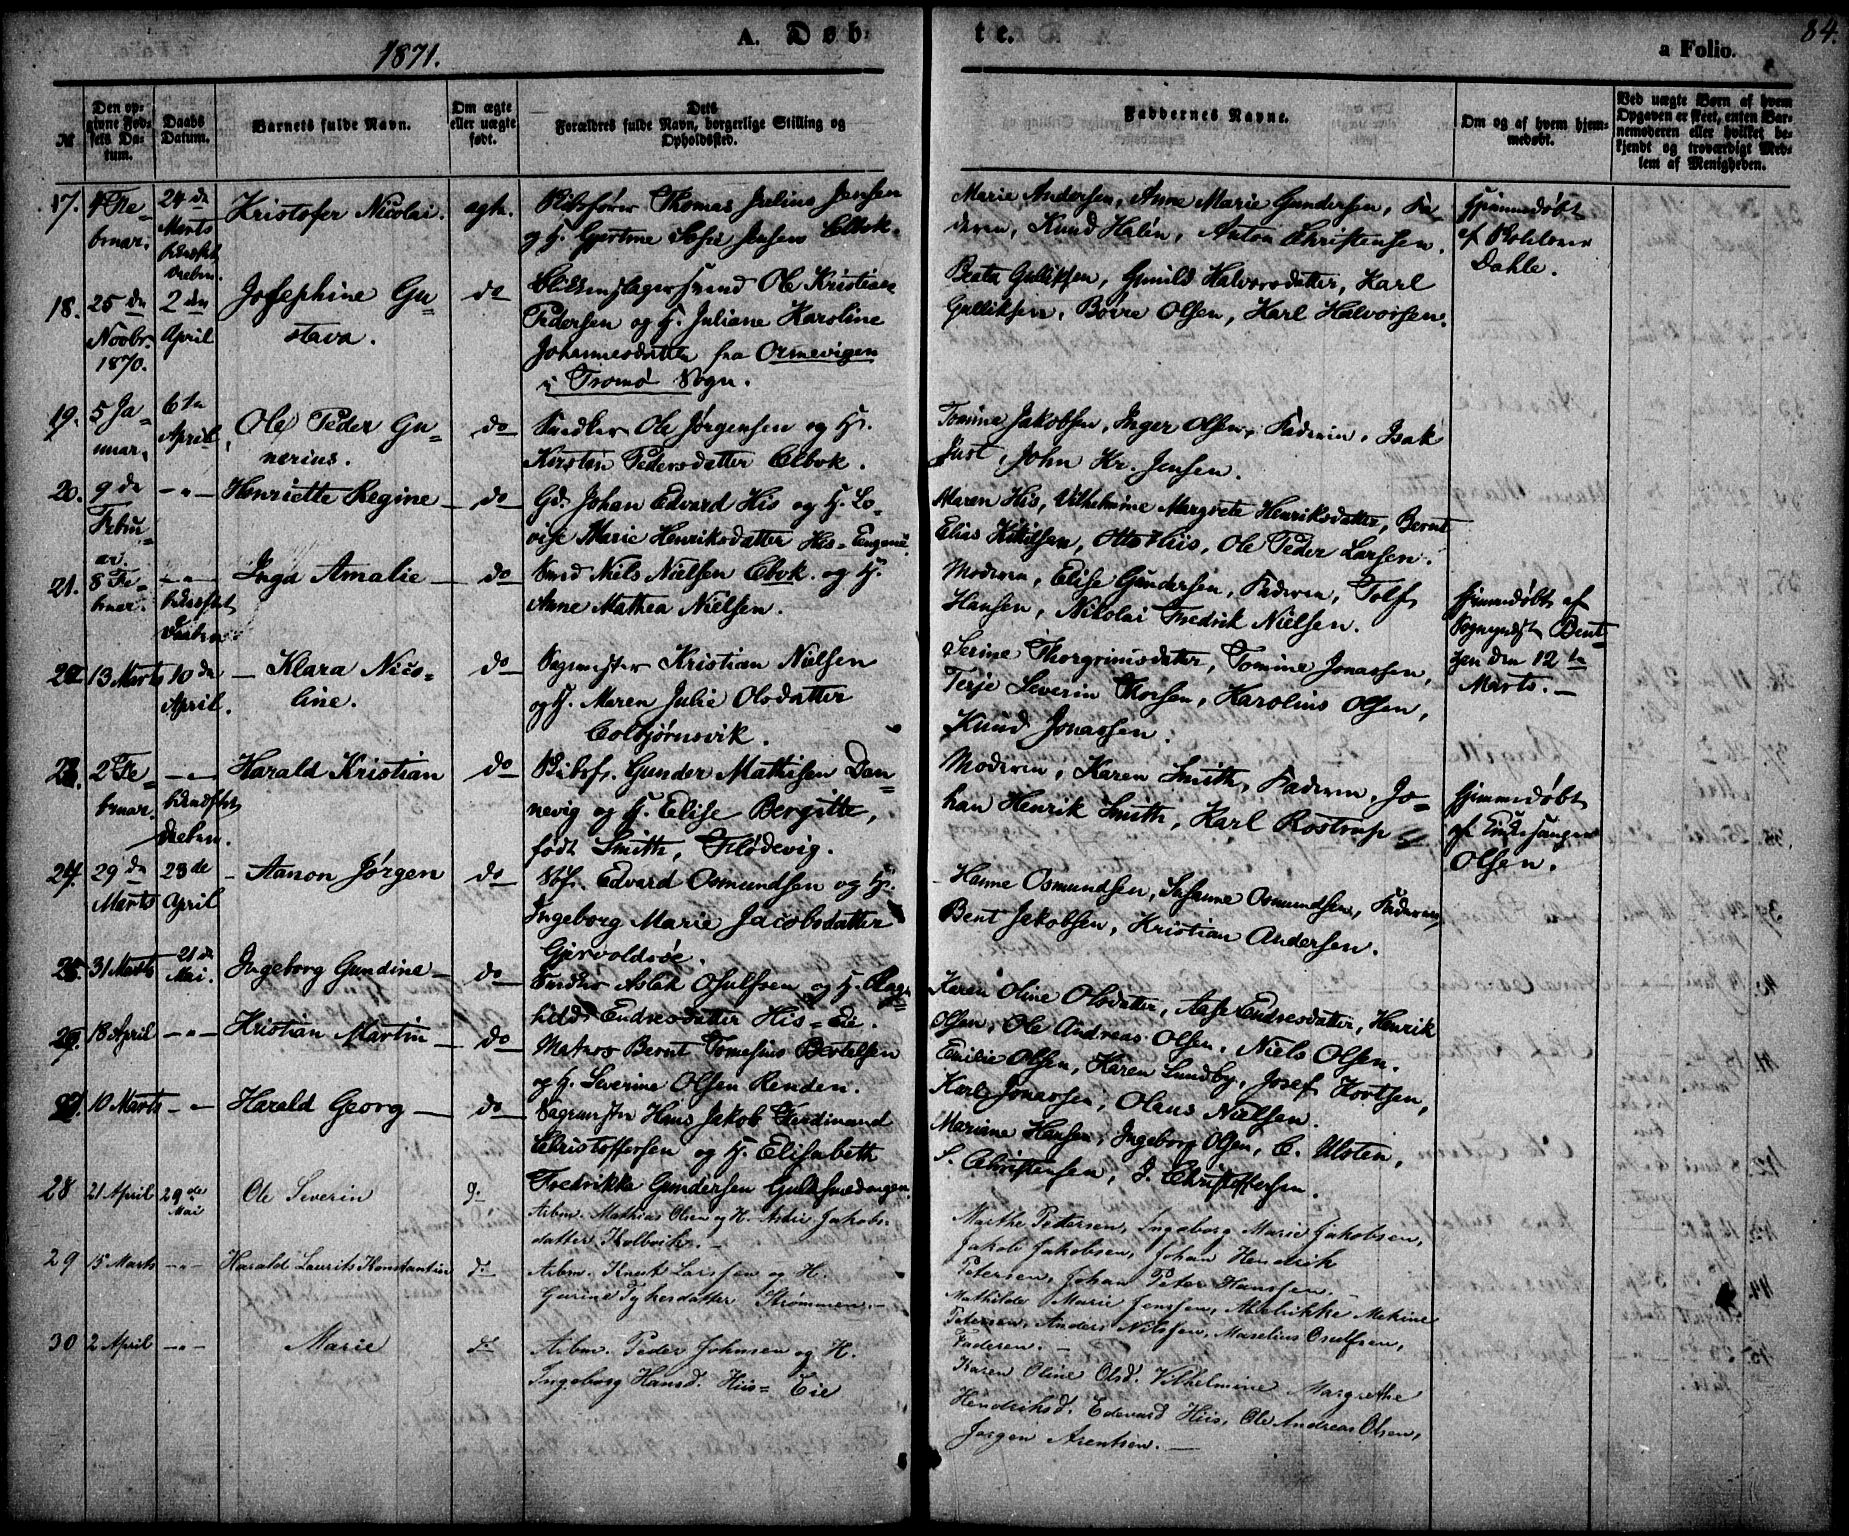 1871.
A. Døbte.
84.
a Folio.
№
Den op-
givne Fød-
sels Da-
tum.
Daabs
Datum.
Barnets fulde Navn.
Om ægte
eller uægte
født.
Dets
Forældres fulde Navn, borgerlige Stilling og
Opholdssted.
Faddernes Navne.
Om og af hvem hjem-
medøbt.
Ved uægte Børn af hvem
Opgaven er skeet, enten Bar-
nemoderen eller hvilket be-
kjendt og troværdigt Med-
lem af Menigheden.
17.
4 Fe-
bruar.
24 de
Marts
Kristofer Nicolai.
ægte.
Skibsfører Thomas Julius Jensen
og H. Gjertine Sofie Jensen Colbok.
Marie Andersen, Anne Marie Gundersen, Fa-
deren, Knud Halén, Anton Christensen.
Hjemmedøbt
af
Dahle.
18.
25 de
Novbr.
1870.
2 den
April
Josephine Gu-
stava.
do
Blikkenslagersvend Ole Kristian
Pedersen og H. Juliane Karoline
Johannesdatter fra Ormevigen
i Tromø Sogn.
Beata Gulliksen, Gunild Halvorsdatter, Karl
Gulliksen, Børre Olsen, Karl Halvorsen.
19.
5 Ja-
nuar.
6 te
April
Ole Peder Gu-
nerius.
do
Snedker Ole Jørgensen og H.
Kirstin Pedersdatter Colbok.
Tomine Jakobsen, Inger Olsen, Faderen, Isak
Just, John Kr. Jensen.
20.
9 de
Febru-
ar.
- " -
Henriette Regine
do
Gd. Johan Edvard His og H. Lo-
vise Marie Henriksdatter His-
Maren His, Vilhelmine Margrete Henriksdatter, Bernt
Elias Kittilsen, Otto Hiis, Ole Peder Larsen.
21.
8 Fe-
bruar.
- " -
Inga Amalie
do
Smed Niels Nielsen Cbok. og H.
Anne Mathea Nielsen.
Moderen, Elise Gundersen, Faderen, Tolf
Hansen, Nikolai Fredrik Nielsen.
Hjemmedøbt af
Sogneprest Bent
zen den 12 te
Marts.
22
13 Marts
10 de
April.
Klara Nico-
line.
do
Sagmester Kristian Nielsen
og H. Maren Julie Olsdatter
Colbjørnsvik.
Serine Thorgrimsdatter, Tomine Jonassen,
Terje Severin Thorsen, Karolius Olsen,
Knud Jonassen.
23.
2 Fe-
bruar.
- " -
Harald Kristian
do
Skibsf. Gunder Mathisen Dan-
nevig og H. Elise Bergitte,
født Smith, Flødevig.
Moderen, Karen Smith, Faderen, Jo-
han Henrik Smith, Karl Rostrup
Hjemmedøbt
af Kirkesanger
Olsen.
24.
29 de
Marts
23 de
April
Aanon Jørgen
do
Edvard Osmundsen og H.
Ingeborg Marie Jacobsdatter
Gjervoldsøe.
Hanne Osmundsen, Susanne Osmundsen, Faderen,
Bent Jakobsen, Kristian Andersen.
25.
31 Marts
21 de
Mai.
Ingeborg Gundine
do
Snedker Aslak Osulfsen og H. Rag-
hild Endresdatter His-Eie.
Karen Oline Olsdatter, Aase Endresdatter, Henrik
Olsen, Ole Andreas Olsen, Niels Olsen.
26.
18 April
- " -
Kristian Martin
do
Matros Bernt Tomesius Bertelsen
og H. Severine Olsen Renden.
Emilie Olsen, Karen Lundby, Josef Kortsen,
Karl Jonassen, Olaus Nielsen.
27.
10 Marts
- " -
Harald Georg
do
Sagmester Hans Jakob Ferdinand
Christoffersen og H. Elisabeth
Fredrikke Gundersen Guldsmedengen.
Mariane Hansen, Ingeborg Olsen, C. Ulsten,
S. Christensen, J. Christoffersen.
28
21 April
29 de
Mai
Ole Severin
Arbm. Mathias Olsen og H. Jakobs-
datter Kolbvik.
Marthe Petersen, Ingeborg Marie Jakobsen,
Jakob Jakobsen, Johan Hendrik
Petersen, Johan Peter Hanssen.
29
15 Marts
- " -
Harald Laurits Konstantin
do
Arbm. Knut Larssen og H.
Gurine Tykesdatter Strømmen.
Mathilde Marie Jenssen, Mekine
Petersen, Anders Nilssen, Maselius Osulfsen,
Faderen.
30
2 April
- " -
Marie
do
Arbm. Peder Johnsen og H.
Ingeborg Hansd. Hiis-Eie
Karen Oline Olsd. Vilhelmine Margrethe
Hendriksd. Edevard Hiis, Ole Andreas Olsen,
Jørgen Arentsen.